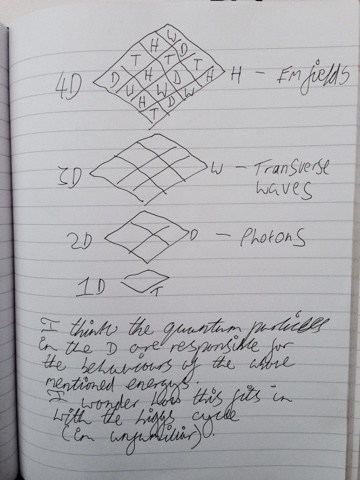 H W
T D
4D D H T H — Em fields
U W D A
H D W
T
3D W — Transverse
waves
2D D — Photons
1D T
I think the quantum particles
in the D are responsible for
the behaviours of the above
mentioned energys.
I wonder how this fits in
with the higgs cycle
(im unfamiliar).